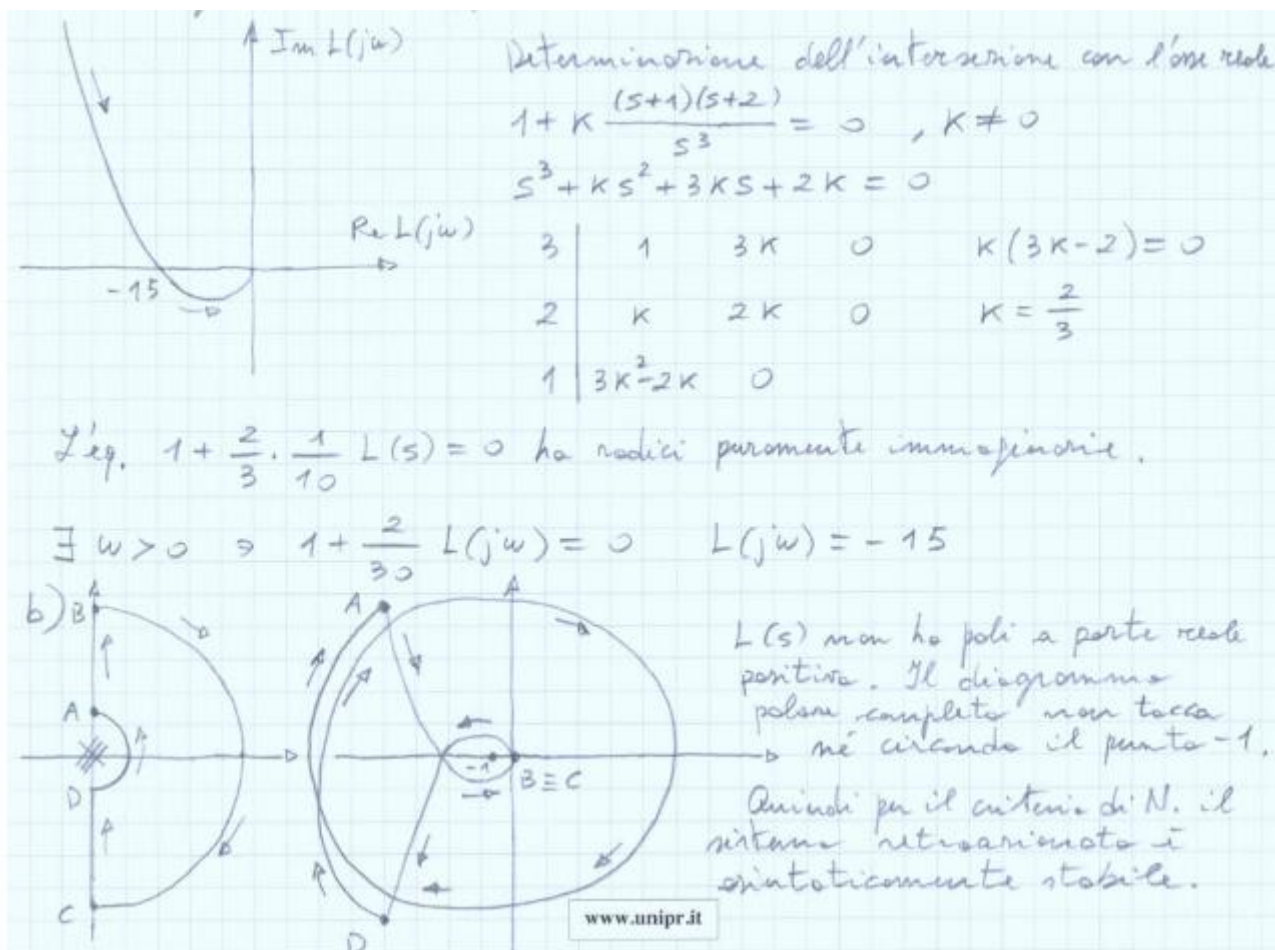 Im L(jω)
Determinazione dell'intersezione con l'asse reale
1 + K (s+1)(s+2) / s³ = 0 , K ≠ 0
s³ + K s² + 3 K s + 2 K = 0
Re L(jω)
-15
3 | 1 3K 0 K(3K-2) = 0
2 | K 2K 0 K = 2/3
1 | 3K²-2K 0
L'eq. 1 + 2/3 · 1/10 L(s) = 0 ha radici puramente immaginarie.
∃ ω > 0 ∋ 1 + 2/30 L(jω) = 0 L(jω) = -15
b) B
A
D
C
A
-1
B ≡ C
D
L(s) non ha poli a parte reale
positiva. Il diagramma
polare completo non tocca
né circonda il punto -1.
Quindi per il criterio di N. il
sistema retroazionato è
asintoticamente stabile.
www.unipr.it